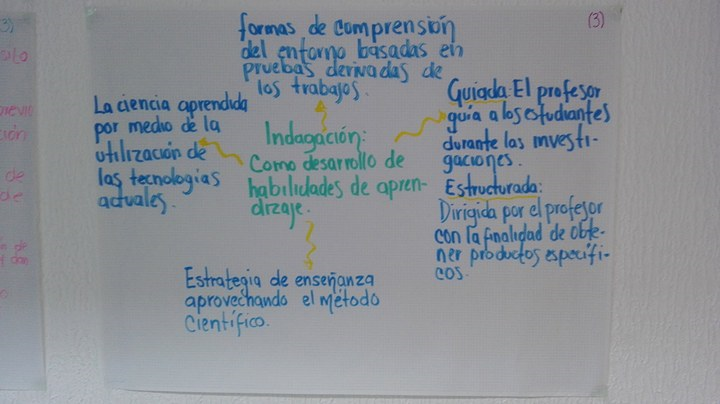 (3)
formas de comprensión
del entorno basadas en
pruebas derivadas de
los trabajos.
La ciencia aprendida
por medio de la
utilización de
las tecnologías
actuales.
Indagación:
Como desarrollo de
habilidades de apren-
dizaje.
Guiada: El profesor
guía a los estudiantes
durante las investi-
gaciones.
Estructurada:
Dirigida por el profesor
con la finalidad de obte-
ner productos específi-
cos.
Estrategia de enseñanza
aprovechando el método
Científico.